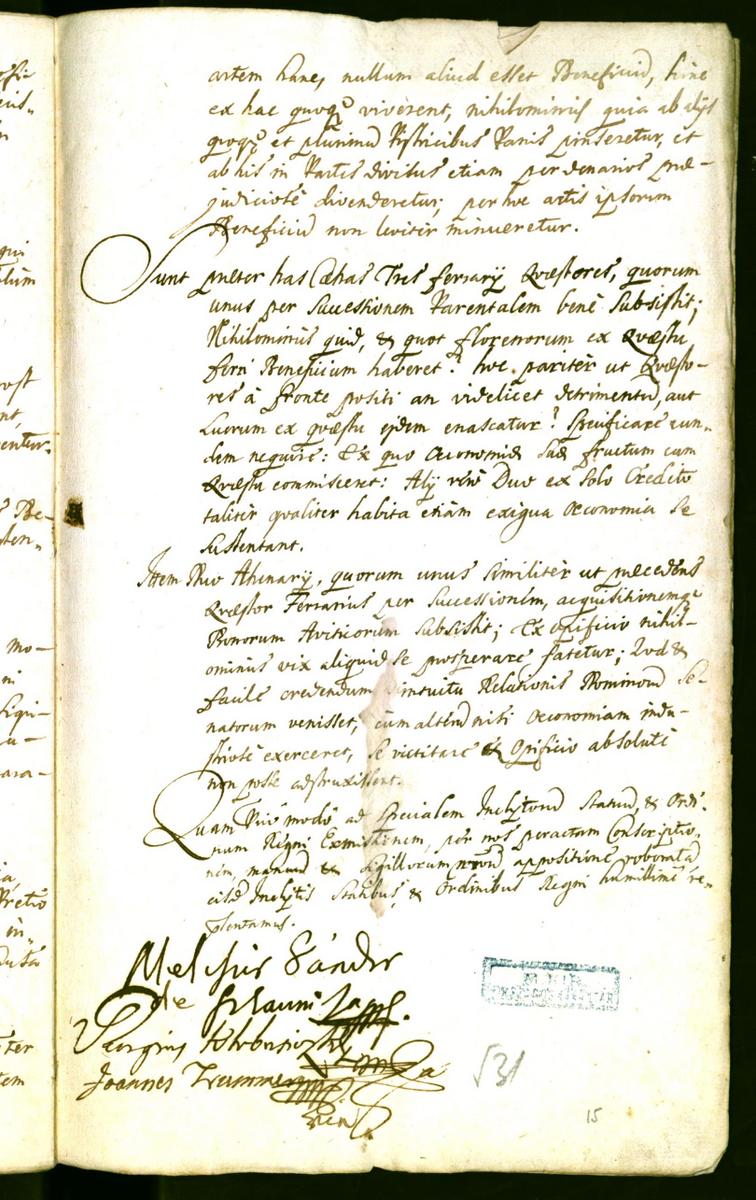 artem hanc, nullum aliud esset Beneficiũ, hinc
ex hac quoqȝ viverent, nihilominus quia ab alijs
quoqȝ et plurimũ Pistricibus Panis pinseretur, et
ab his in Partes divisus etiam per denarios præ-
judiciosè divenderetur; per hoc artis ipsorum
Beneficiũ non leviter minueretur.
Sunt præter has Tres ferrarij Quæstores, quorum
unus per Successionem Parentalem benè Subsistit;
Nihilominus quid, & quot florenorum ex Quæstu
ferri Beneficium haberet? hoc pariter ut Quæsto-
res à fronte positi an videlicet detrimentũ, aut
Lucrum ex quæstu ejdem enascatur? Specificare eun-
dem nequire: Ex quo Œconomiæ Suæ fructum cum
Quæstu commisceret: Alij verò Duo ex Solo Credito
taliter qualiter habita etiam exigua Œconomia Se
Sustentant.
Item Duo Athenarij, quorum unus Similiter ut præcedens
Quæstor Ferrarius per Successionem, acquisitionemqȝ
Bonorum Aviticorum Subsistit; Ex opificio nihil-
ominus vix aliquid se prosperare fatetur; Quod &
facile credendum intuitu Relationis Dominorũ Se-
natorum venisset, cum alter nisi Œconomiam indu-
striosè exerceret, Se victitare Opificio absolutè
non posse adstruxissent.
Quam Sivè modò ad Specialem Inclytorũ Statuũ, & Ordi-
num Regni Exmissionem, per nos peractam Conscriptio-
nem, manuũ & Sigillorum appositione roboratã
eisdẽ Inclytis Statibus, & Ordinibus Regni humillimè re-
præsentamus.
Melchior Sándor
de
Georgius
Joannes
531
15